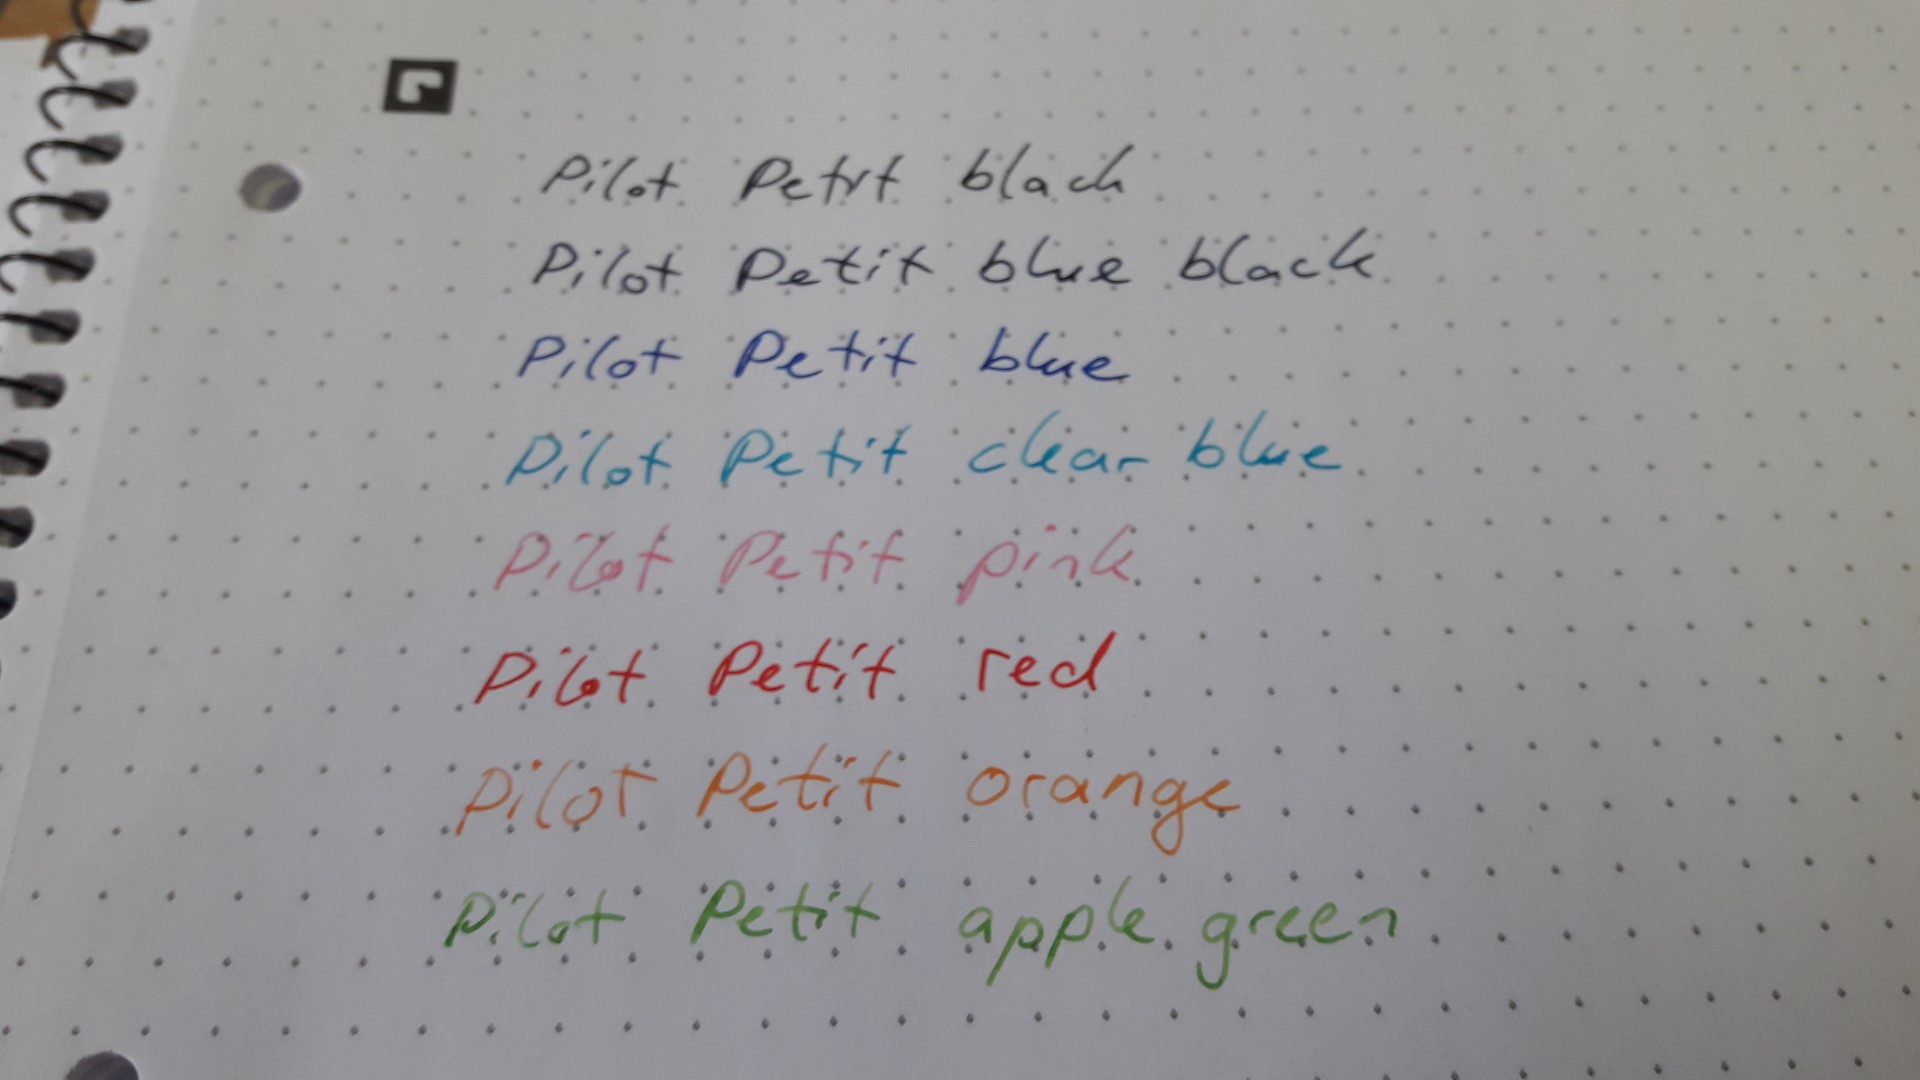 Pilot Petit black
Pilot Petit blue black
Pilot Petit blue
Pilot Petit clear blue
Pilot Petit pink
Pilot Petit red
Pilot Petit orange
Pilot Petit apple green